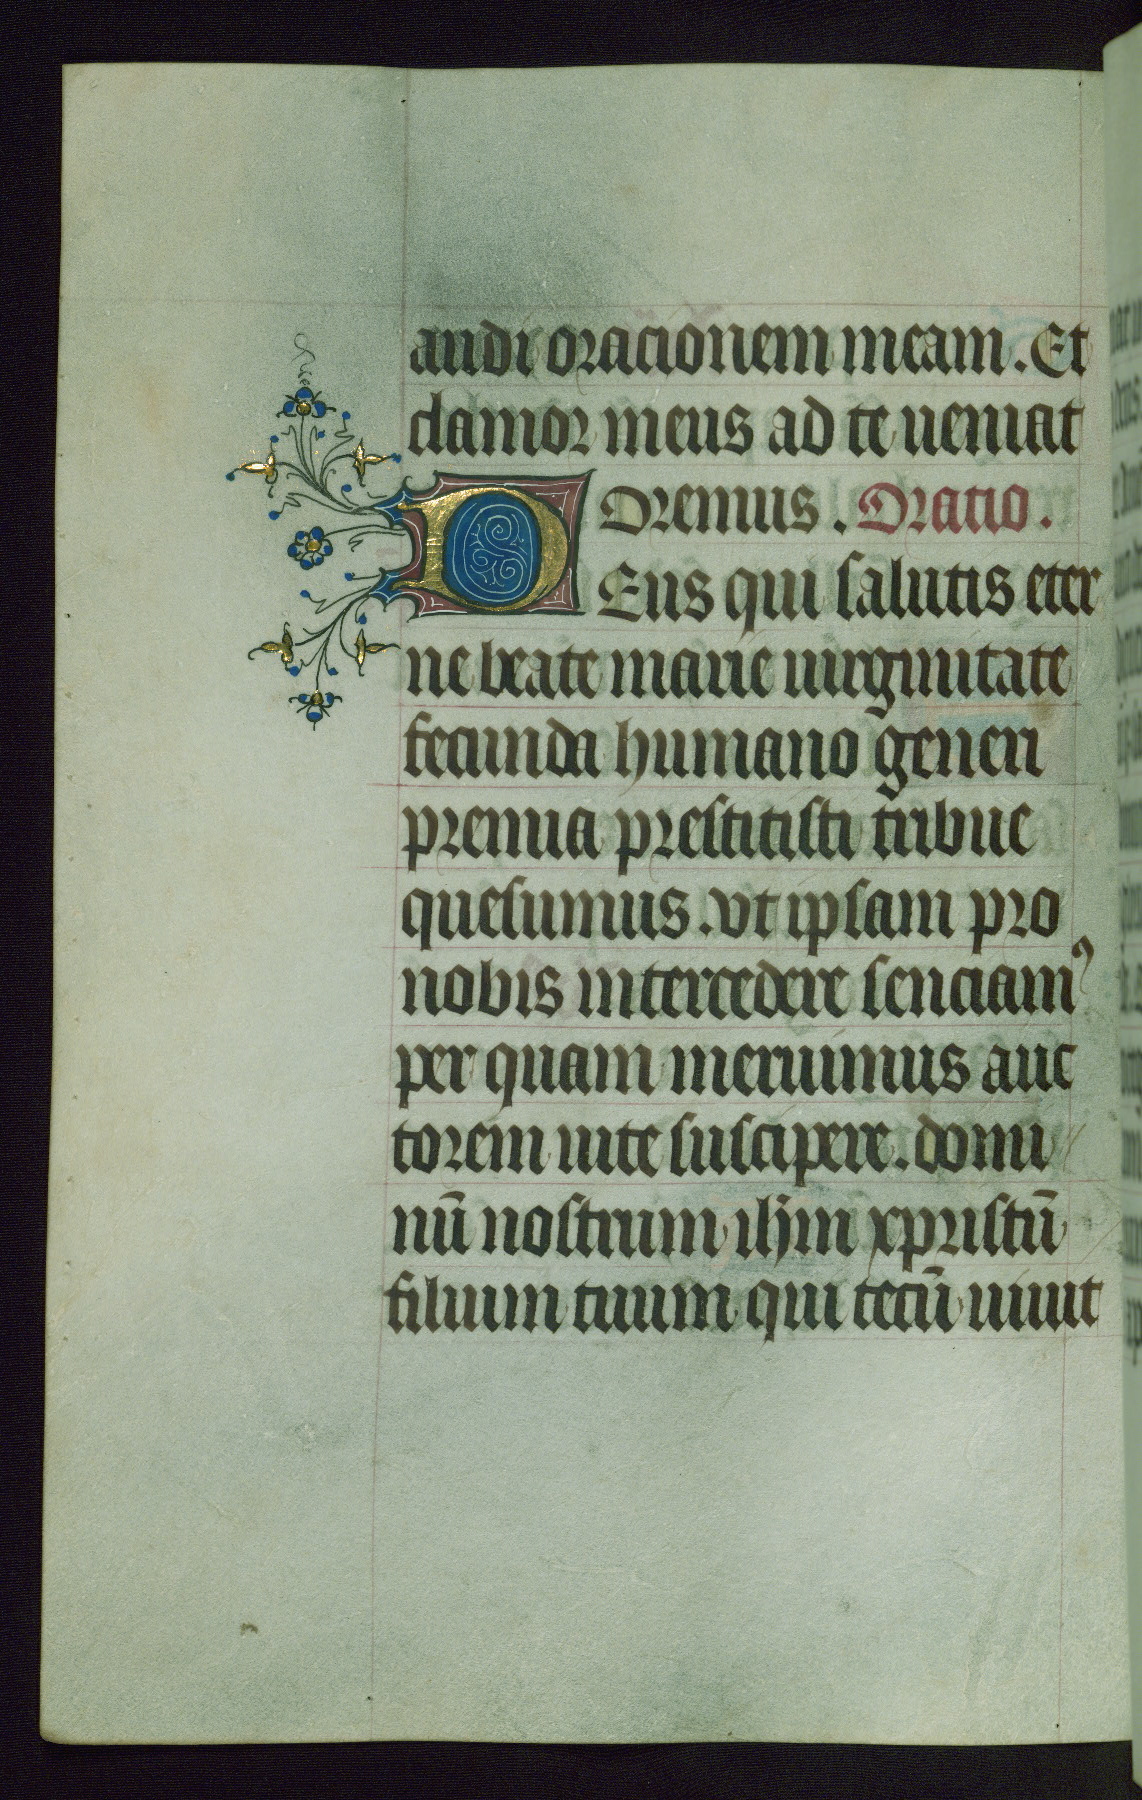 audi oracionem meam. Et
clamor meus ad te ueniat
Oremus. Oratio.
DEus qui salutis eter
ne beate marie uirginitate
fecunda humano generi
premia prestitisti tribue
quesumus. vt ipsam pro
nobis intercedere senciamꝰ
per quam meruimus auc
torem uite suscipere. domi
nū nostrum ihm xpristū
filium tuum qui tecū uiuit